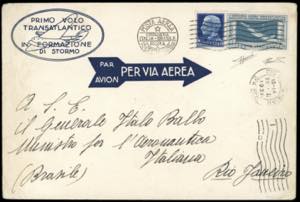 PRIMO VOLO
TRANSATLANTICO
IN FORMAZIONE
DI STORMO
POSTA AEREA
ITALIA - BRASILE
PAR
AVION
PER VIA AEREA
A. S. E.
il Generale Italo Balbo
Ministro per l'Aeronautica
Italiana
(Brasile)
Rio Janeiro